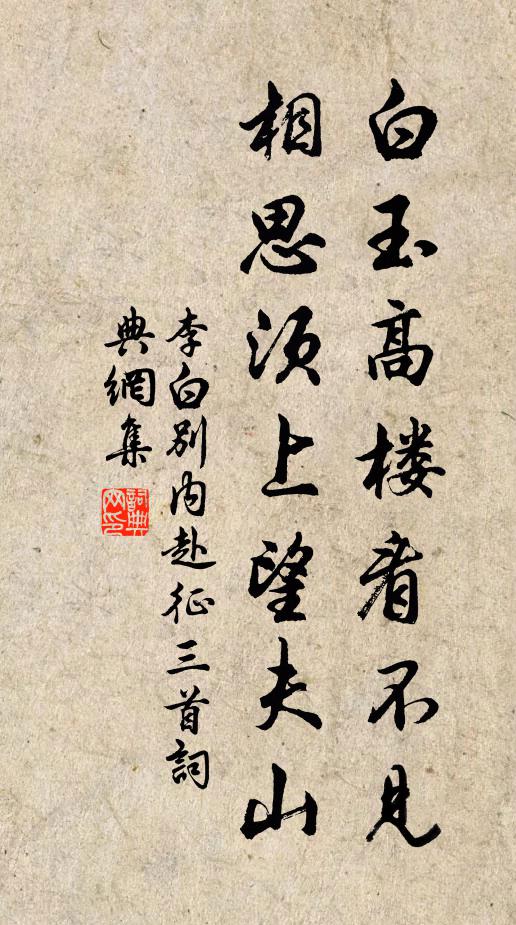 白玉高楼看不见
相思须上望夫山
李白别内赴征三首詞
典網集
詞典网印